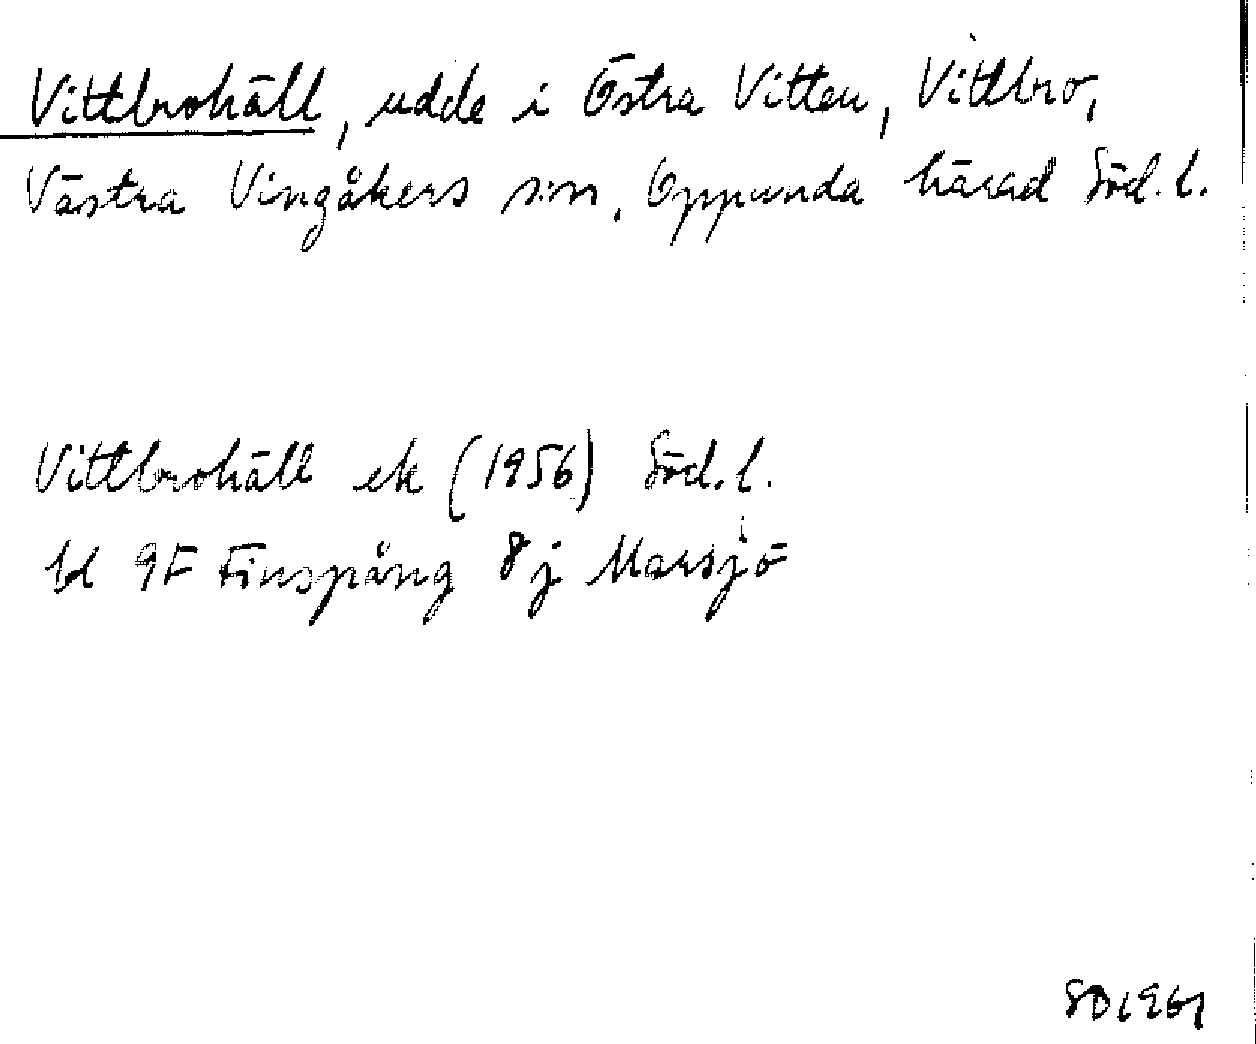 Vittbrohäll, udde i Östra Vitten, Vittbro,
Västra Vingåkers s:n, Oppunda härad Söd. l.
Vittbrohäll ek (1956) Söd. l.
bl 9F Finspång 8 j Marsjö